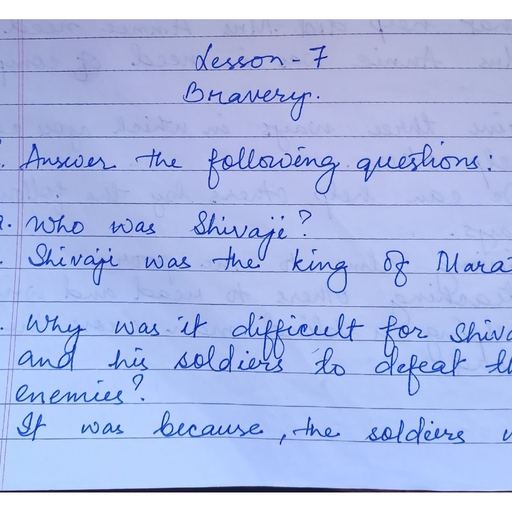 Lesson - 7
Bravery.
. Answer the following questions:
. Who was Shivaji?
. Shivaji was the king of Mara
. Why was it difficult for Shiva
and his soldiers to defeat th
enemies?
It was because, the soldiers w